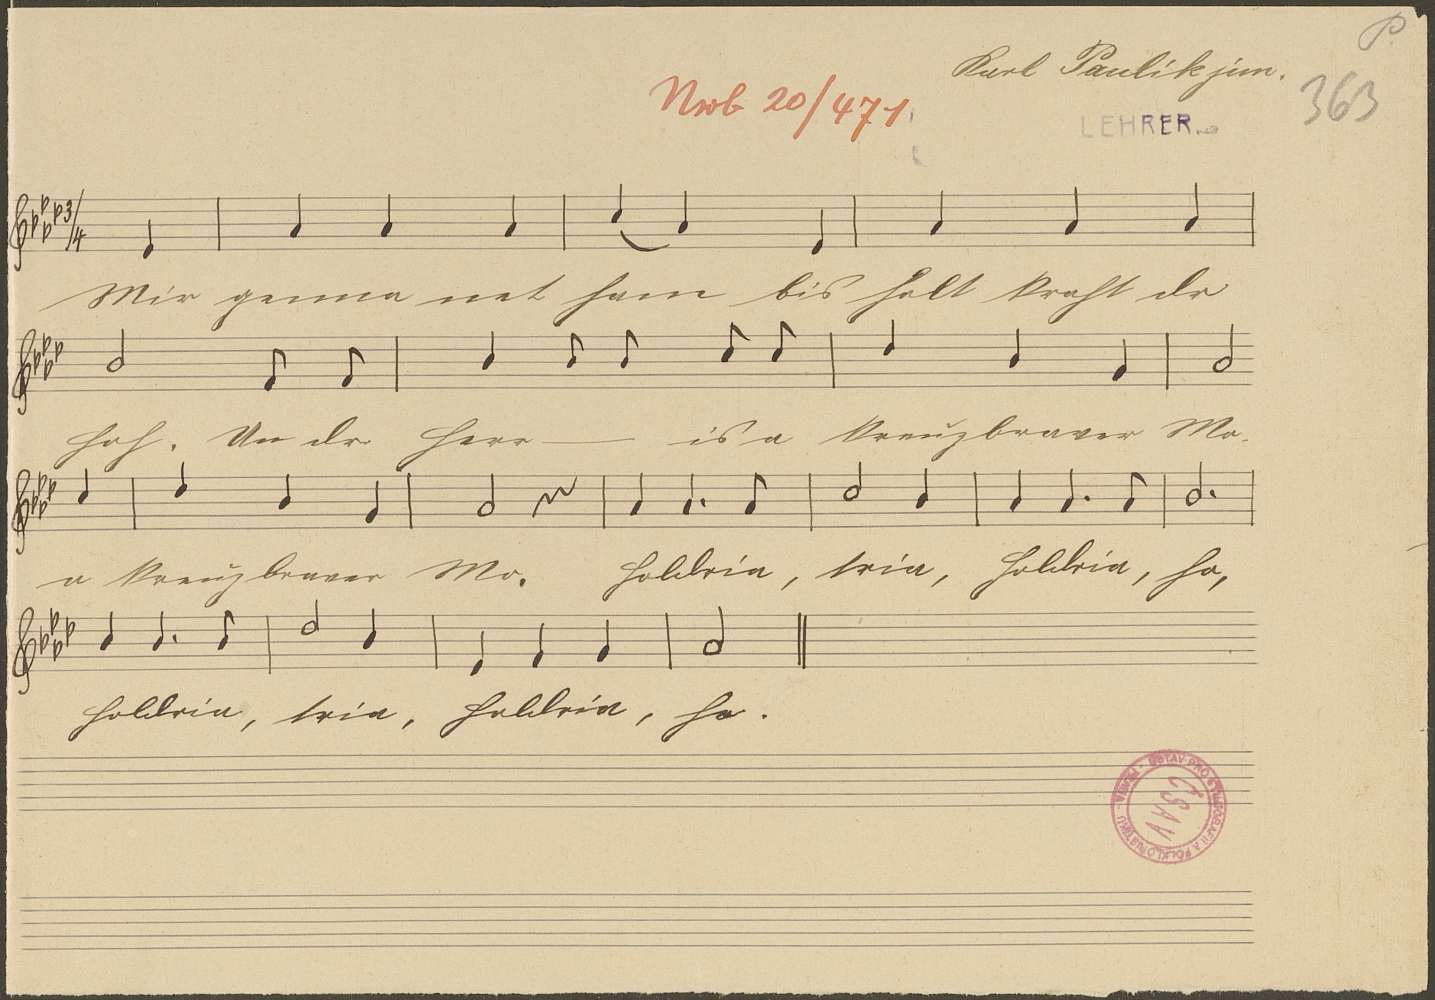 P.
Karl Paulik jun.
Nrob 20/471
363
LEHRER.
3/4
Mir genna net ham bis holt kraht dr
hoh. Un dr Herr — is a kreuzbraver Mo.
a kreuzbraver Mo. Holdria, tria, holdria, ho,
holdria, tria, holdria, ho.
ÚSTAV PRO ETNOGRAFII A FOLKLORISTIKU · PRAHA ·
ČSAV